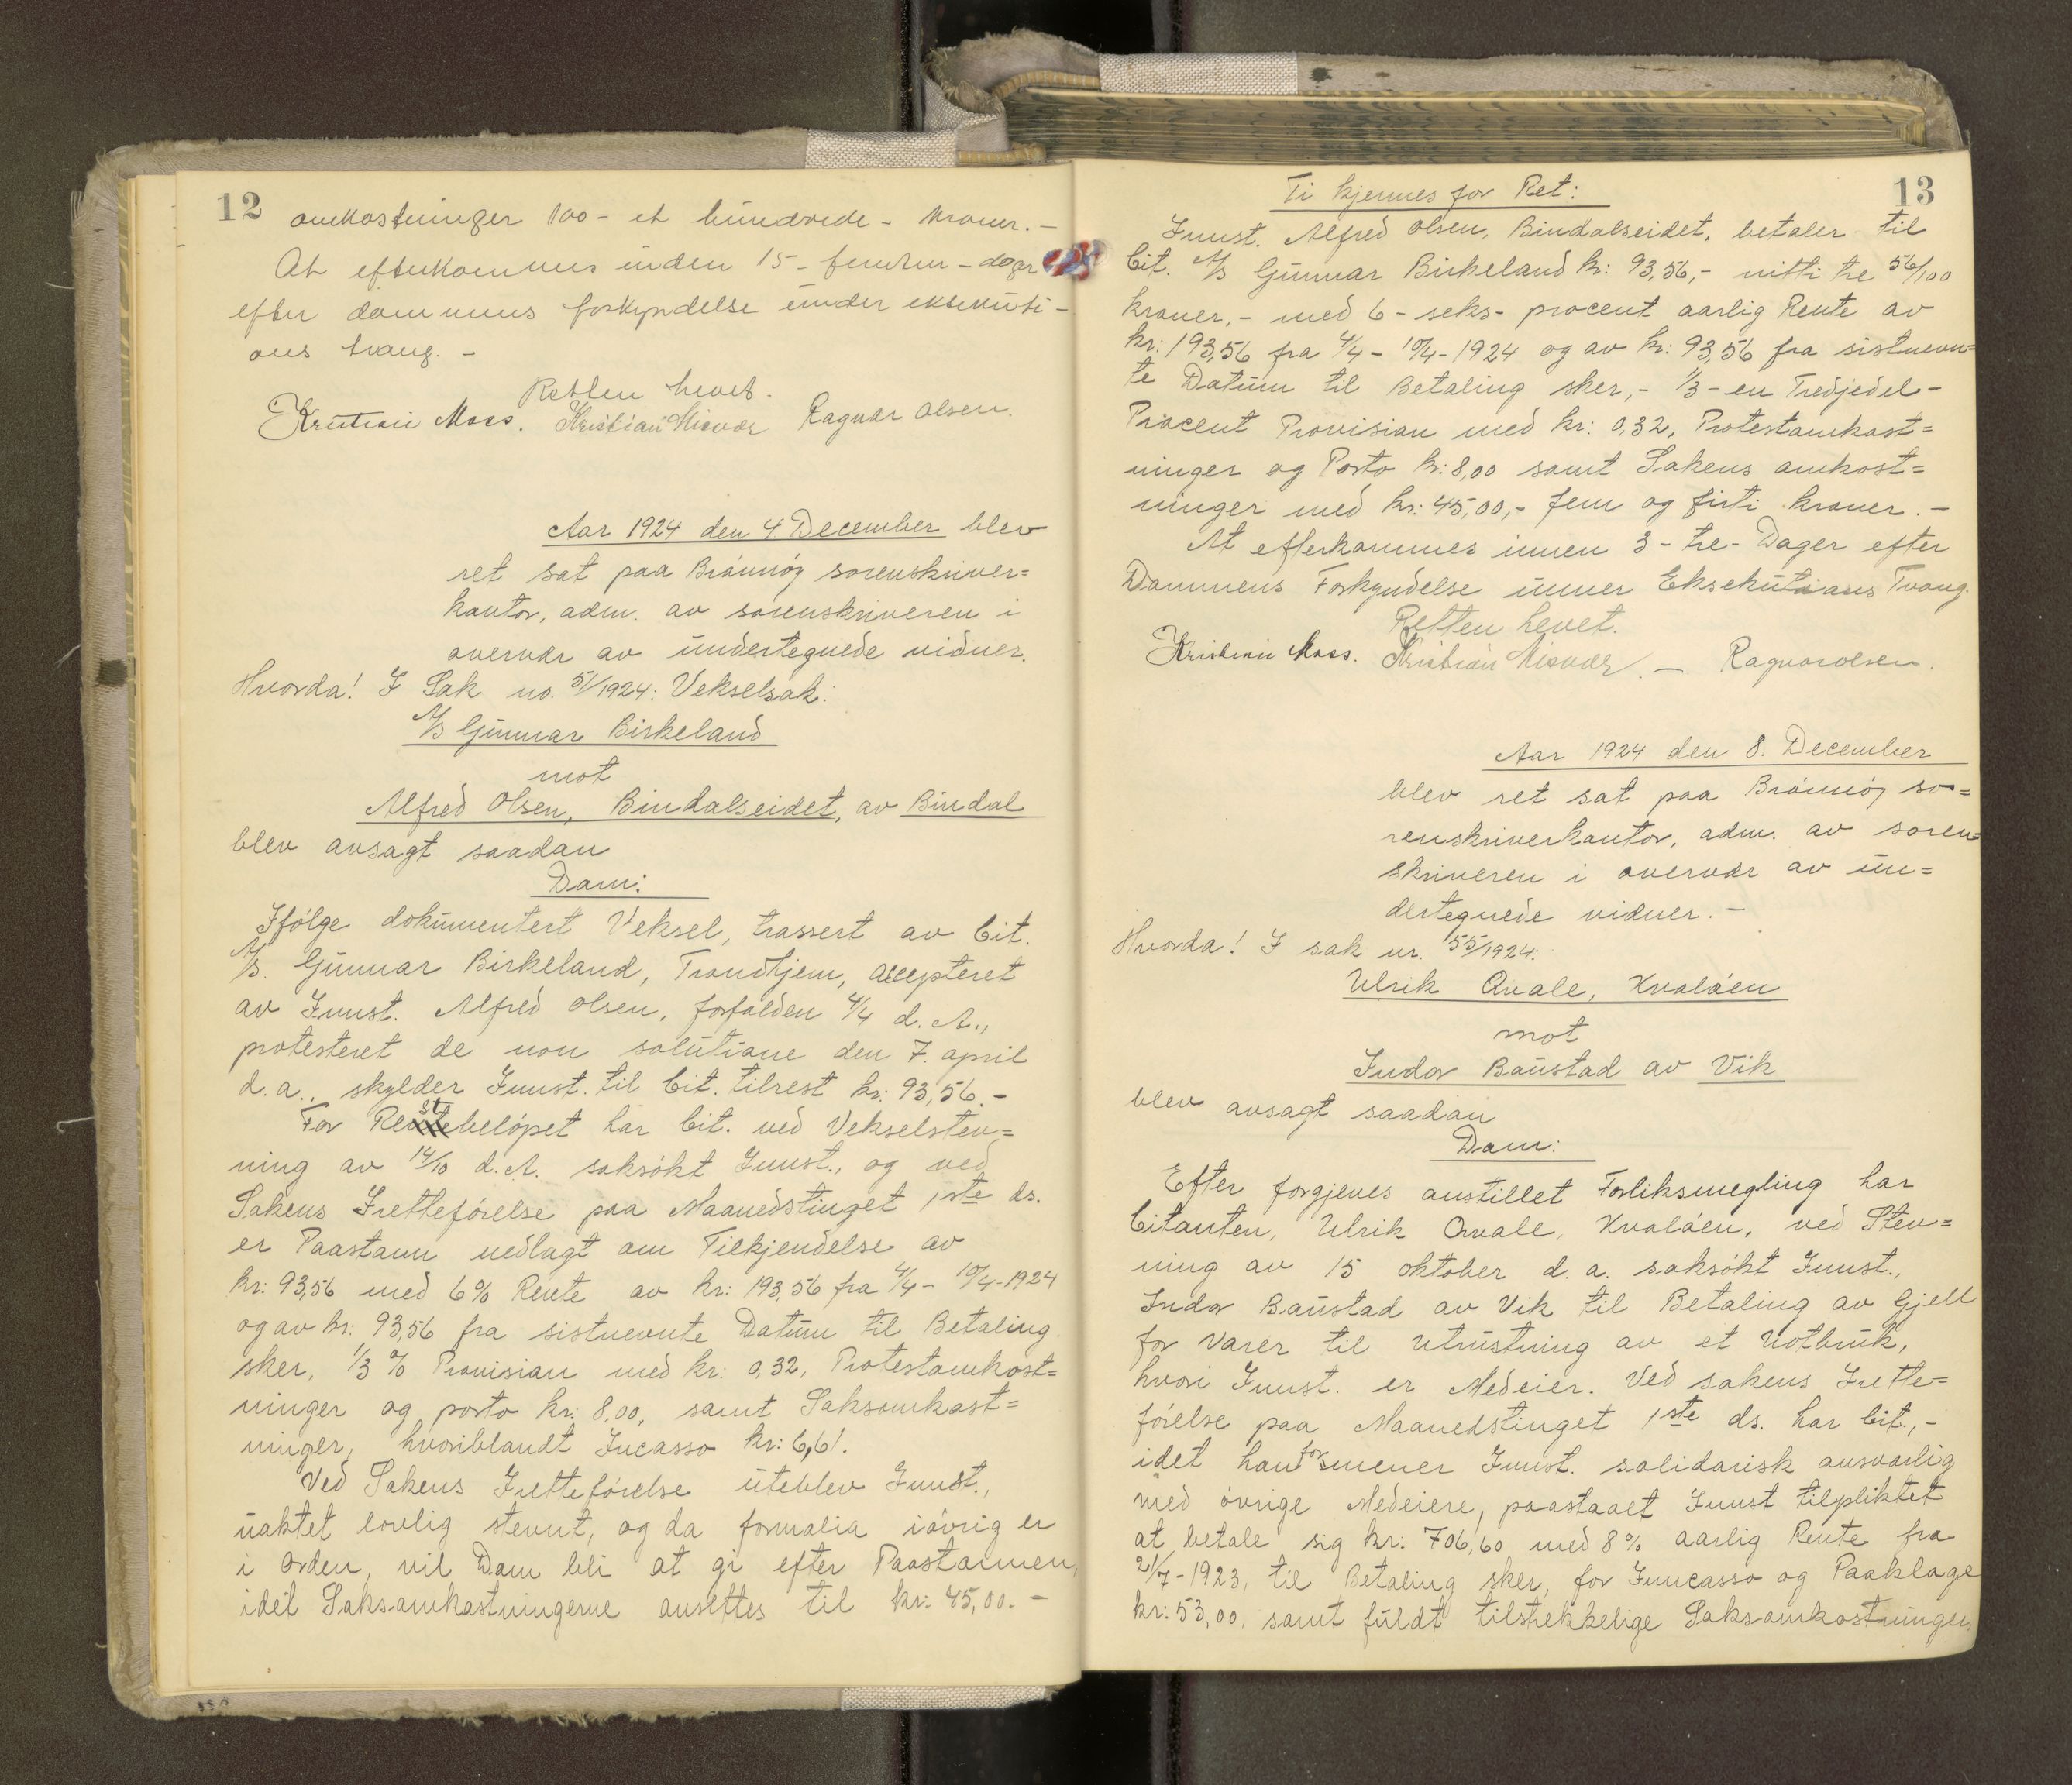 12
omkostninger 100 - et hundrede - kroner. -
At efterkommes inden 15 - femten - dager
efter dommens forkyndelse under eksekuti-
ons tvang. -
Retten hevet.
Kristian Moss. Kristian Misvær Ragnar Olsen.
Aar 1924 den 4 December blev
ret sat paa Brønnøy sorenskriver=
kontor, adm. av sorenskriveren i
overvær av undertegnede vidner.
Hvorda! I Sak no. 51/1924: Vekselsak:
A/S Gunnar Birkeland
mot
Alfred Olsen, Bindalseidet, av Bindal
blev avsagt saadan
Dom:
Ifølge dokumentert Veksel, trassert av Cit.
A/S. Gunnar Birkeland, Trondhjem, accepteret
av Innst. Alfred Olsen, forfalden 4/4 d. A.,
protesteret de non solutione den 7. april
d. a., skylder Innst. til Cit. tilrest kr: 93,56. -
For Restbeløpet har Cit. ved Vekselstev=
ning av 14/10 d. A. saksøkt Innst., og ved
Sakens Iretteførelse paa Maanedstinget 1ste ds.
er Paastann nedlagt om Tilkjendelse av
kr: 93,56 med 6% Rente av kr: 193,56 fra 4/4 - 10/4 - 1924
og av kr: 93,56 fra sistnevnte Datum til Betaling
sker, 1/3 % Provision med kr: 0,32, Protestomkost=
ninger og porto kr: 8,00, samt Saksomkost=
ninger, hvoriblandt Incasso kr: 6,61.
Ved Sakens Iretteførelse uteblev Innst.,
uaktet lovlig stevnt, og da formalia iøvrig er
i Orden, vil Dom bli at gi efter Paastannen,
idet Saksomkostningerne ansettes til kr: 45,00. -
13
Ti kjennes for Ret:
Innst. Alfred Olsen, Bindalseidet, betaler til
Cit. A/S Gunnar Birkeland kr: 93,56, - nitti tre 56/100
kroner, - med 6 - seks - procent aarlig Rente av
kr: 193,56 fra 4/4 - 10/4 - 1924 og av kr: 93,56 fra sistnevn=
te Datum til Betaling sker, - 1/3 - en Tredjedel -
Procent Provision med kr: 0,32, Protestomkost=
ninger og Porto kr: 8,00 samt Sakens omkost=
ninger med kr: 45,00, - fem og firti kroner. -
At efterkommes innen 3 - tre - Dager efter
Dommens Forkyndelse unner Eksekutions Tvang.
Retten hevet.
Kristian Moss. Kristian Misvær. - Ragnar Olsen.
Aar 1924 den 8. December
blev ret sat paa Brønnøy so=
renskriverkontor, adm. av soren=
skriveren i overvær av un=
dertegnede vidner. -
Hvorda! I sak nr. 55/1924:
Ulrik Qvale, Kvaløen
mot
Indor Baustad av Vik
blev avsagt saadan
Dom:
Efter forgjeves anstillet Forliksmegling har
Citanten, Ulrik Qvale, Kvaløen, ved Stev=
ning av 15 oktober d. a. saksøkt Innst.,
Indor Baustad av Vik til Betaling av Gjell
for Varer til Utrustning av et Notbruk,
hvori Innst. er Medeier. Ved sakens Irette=
førelse paa Maanedstinget 1ste ds. har Cit., -
idet han formener Innst. solidarisk ansvarlig
med øvrige Medeiere, paastaaet Innst tilpliktet
at betale sig kr: 706,60 med 8% aarlig Rente fra
21/7 - 1923, til Betaling sker, for Inncasso og Paaklage
kr: 53,00, samt fuldt tilstrekkelige Saksomkostninger,